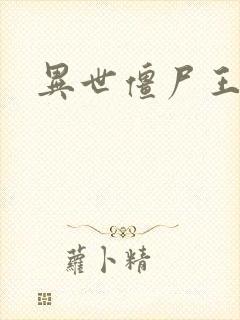 異世僵尸王
蘿卜精